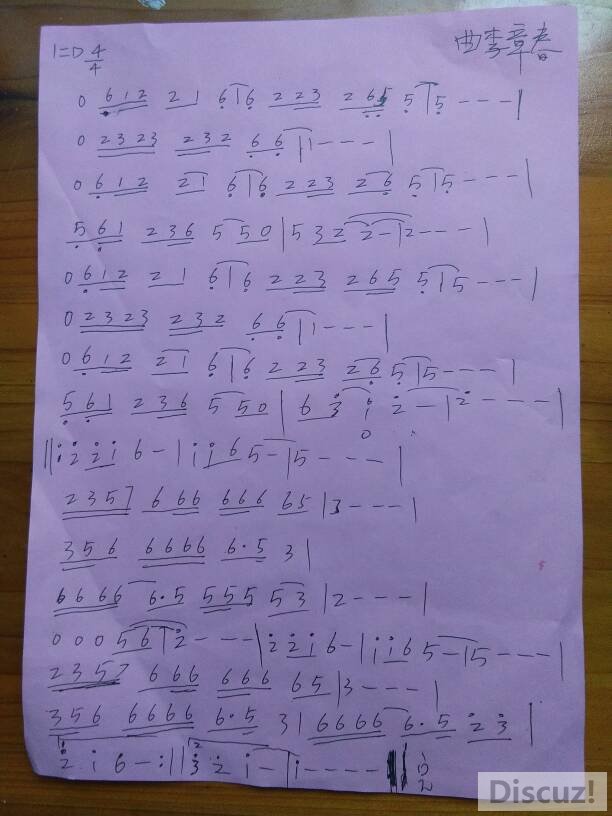 1=D 4/4 曲李章春
0 6 1 2 2 1 6 | 6 2 2 3 2 6 5 5 | 5 - - - |
0 2 3 2 3 2 3 2 6 6 | 1 - - - |
0 6 1 2 2 1 6 | 6 2 2 3 2 6 5 | 5 - - - |
5 6 1 2 3 6 5 5 0 | 5 3 2 2 - | 2 - - - |
0 6 1 2 2 1 6 | 6 2 2 3 2 6 5 5 | 5 - - - |
0 2 3 2 3 2 3 2 6 6 | 1 - - - |
0 6 1 2 2 1 6 | 6 2 2 3 2 6 5 | 5 - - - |
5 6 1 2 3 6 5 5 0 | 6 3 i 2 - | 2 - - - |
||: i 2 2 i 6 - | i i 6 5 - | 5 - - - |
2 3 5 7 6 6 6 6 6 6 6 5 | 3 - - - |
3 5 6 6 6 6 6 6 . 5 3 |
6 6 6 6 6 . 5 5 5 5 5 3 | 2 - - - |
0 0 0 5 6 | 2 - - - | 2 2 i 6 - | i i 6 5 - | 5 - - - |
2 3 5 7 6 6 6 6 6 6 6 5 | 3 - - - |
3 5 6 6 6 6 6 6 . 5 3 | 6 6 6 6 6 . 5 2 3 |
2 i 6 - :|| 3 2 i - | i - - - - ||
Discuz!